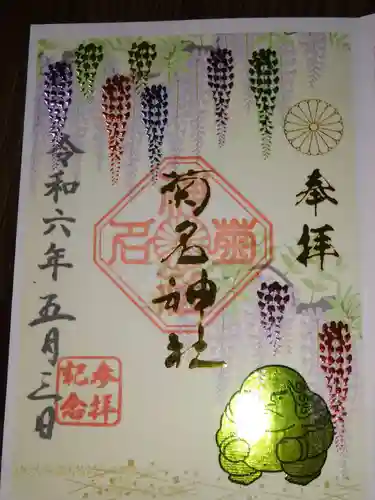 奉拝
菊名神社
令和六年五月三日
参拝
記念